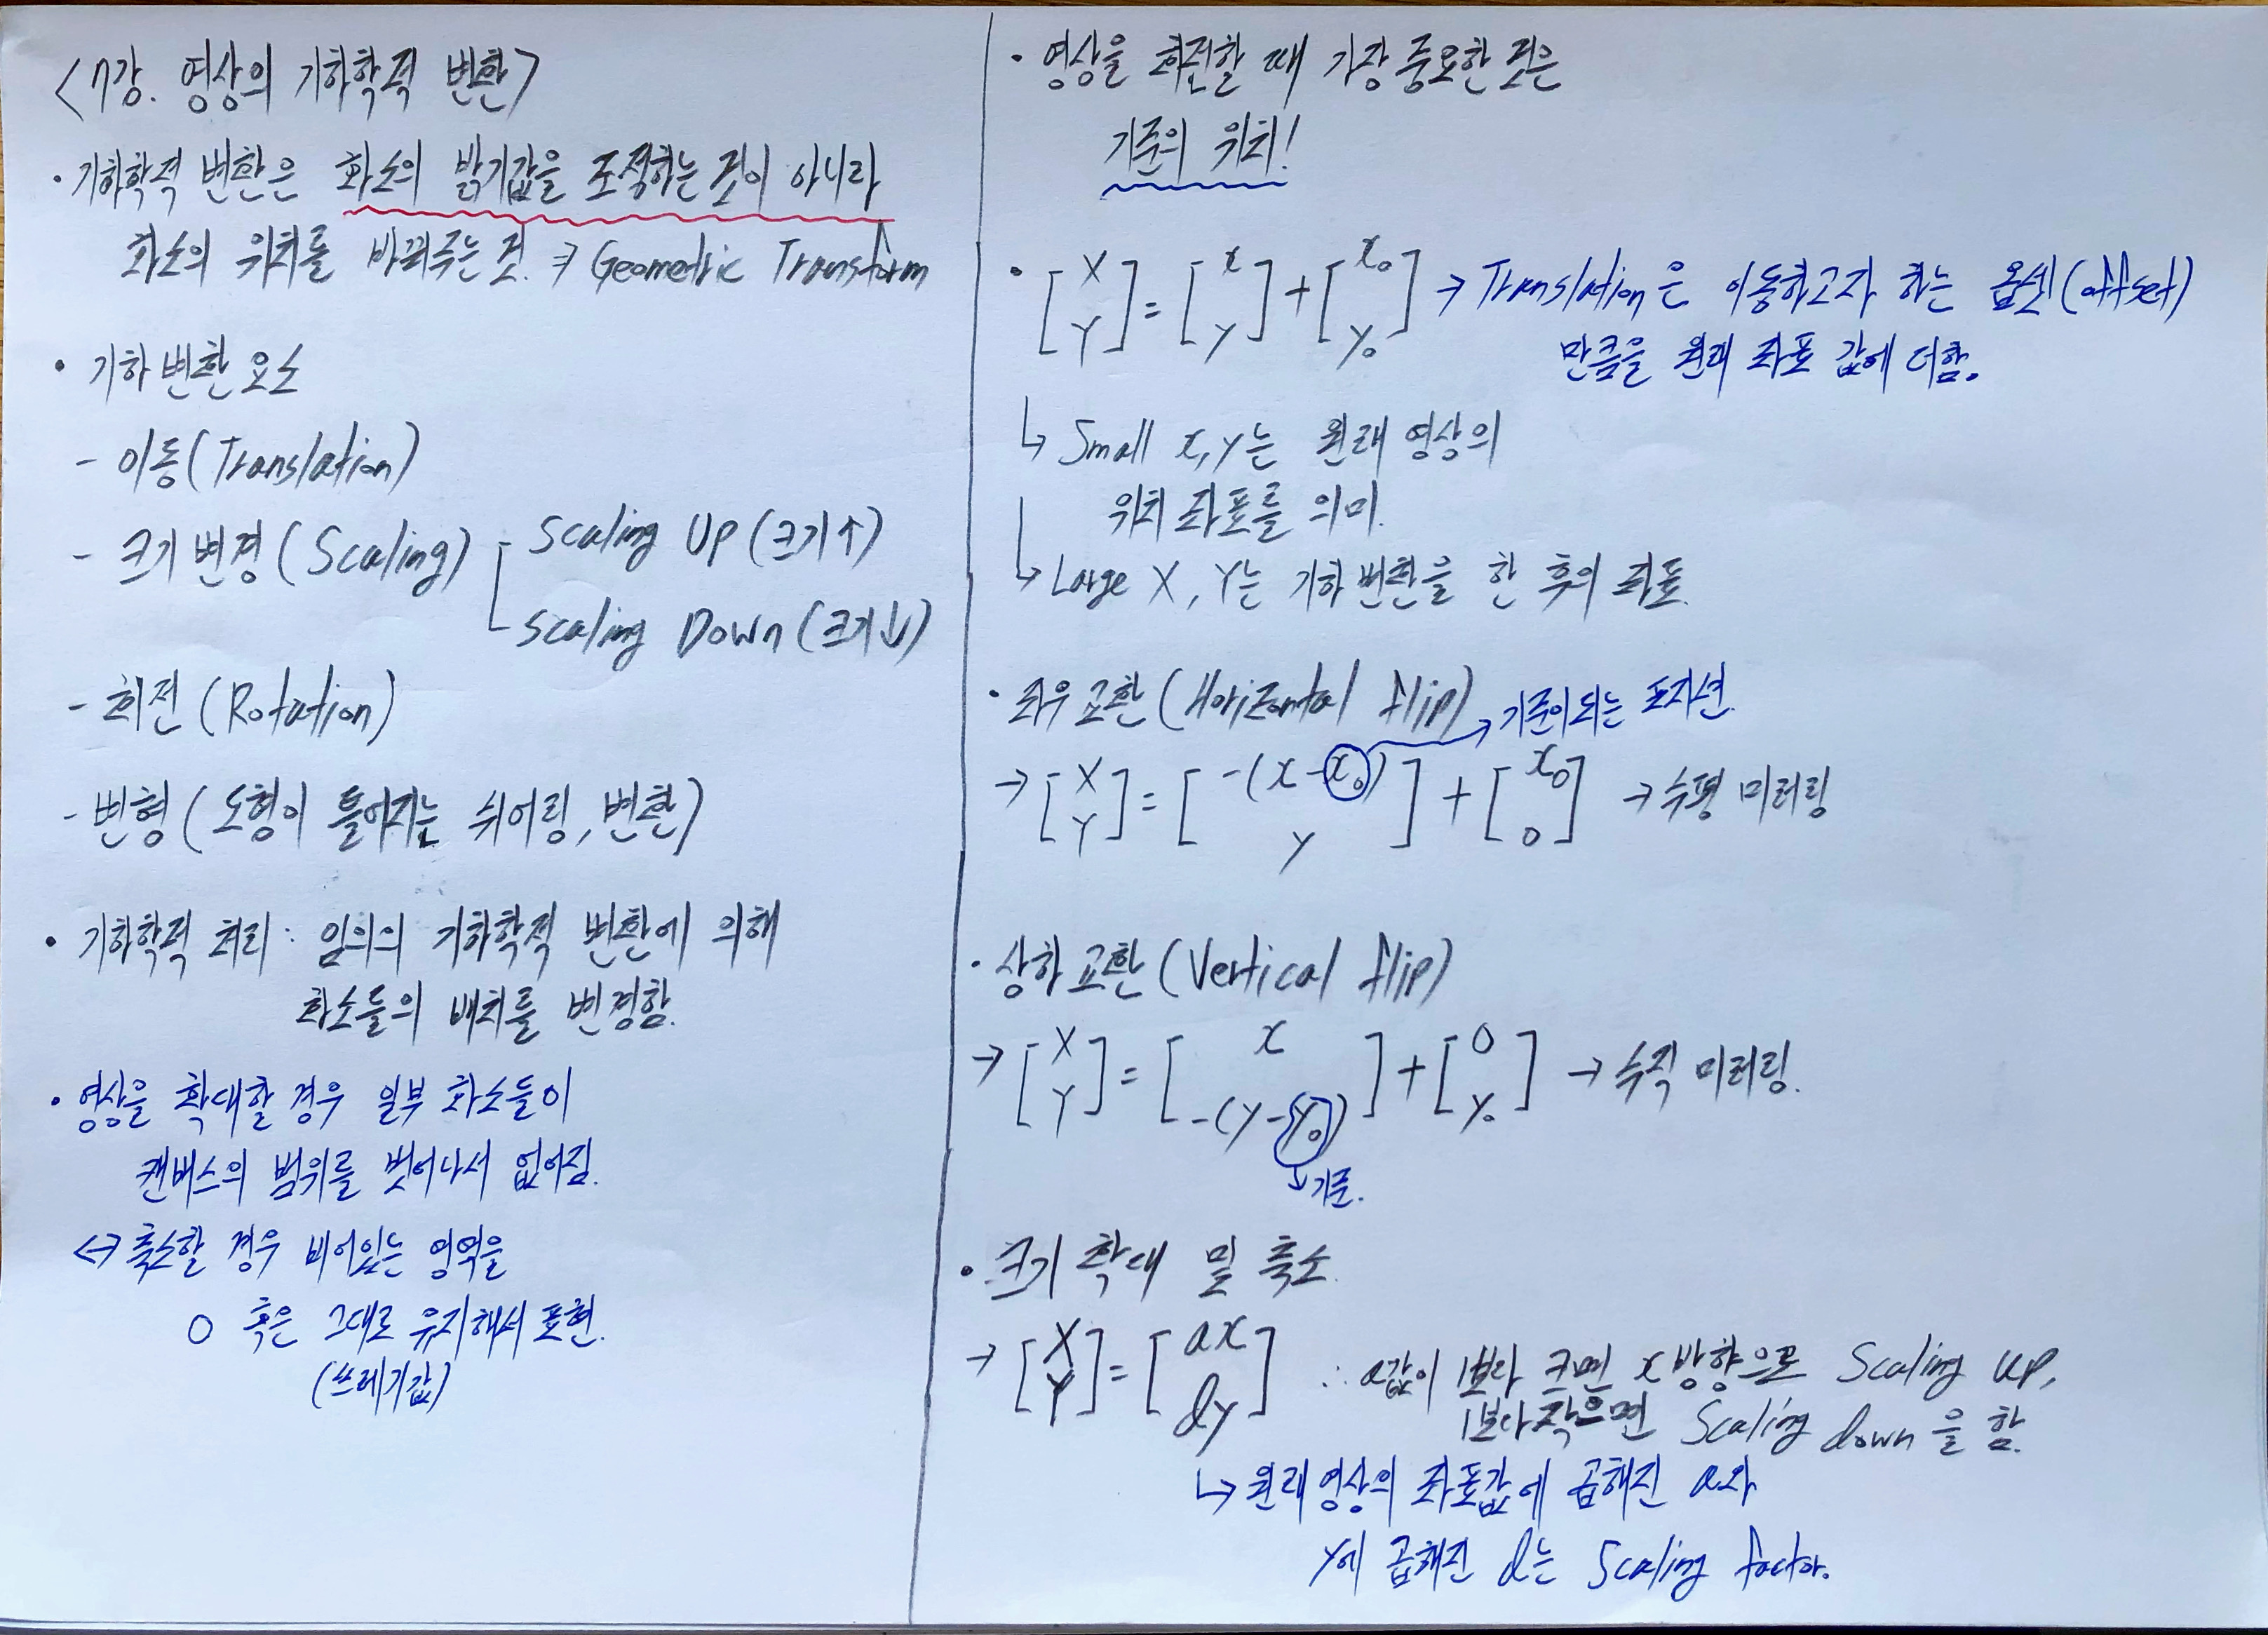 <7강. 영상의 기하학적 변환>
· 기하학적 변환은 화소의 밝기값을 조작하는 것이 아니라
화소의 위치를 바꿔주는 것. ⇒ Geometric Transform
· 기하 변환 요소
- 이동(Translation)
- 크기 변경(Scaling)
Scaling Up (크기↑)
Scaling Down (크기↓)
- 회전(Rotation)
- 변형(도형이 틀어지는 쉬어링, 변환)
· 기하학적 처리: 임의의 기하학적 변환에 의해
화소들의 배치를 변경함.
· 영상을 확대할 경우 일부 화소들이
캔버스의 범위를 벗어나서 없어짐.
↔ 축소할 경우 비어있는 영역을
0 혹은 그대로 유지해서 표현.
(쓰레기값)
· 영상을 회전할 때 가장 중요한 것은
기준의 위치!
· [X Y] = [x y] + [x₀ y₀] → Translation은 이동하고자 하는 옵셋(offset)
만큼을 원래 좌표 값에 더함.
↳ Small x, y는 원래 영상의
위치 좌표를 의미.
↳ Large X, Y는 기하 변환을 한 후의 좌표.
· 좌우 교환(Horizontal flip)
→ 기준이 되는 포지션.
→ [X Y] = [-(x-x₀) y] + [x₀ 0] → 수평 미러링
· 상하 교환(Vertical flip)
→ [X Y] = [x -(y-y₀)] + [0 y₀] → 수직 미러링.
↓ 기준.
· 크기 확대 및 축소.
→ [X Y] = [ax dy] ∴ a값이 1보다 크면 x방향으로 Scaling up,
1보다 작으면 Scaling down을 함.
↳ 원래 영상의 좌표값에 곱해진 a와
y에 곱해진 d는 Scaling factor.